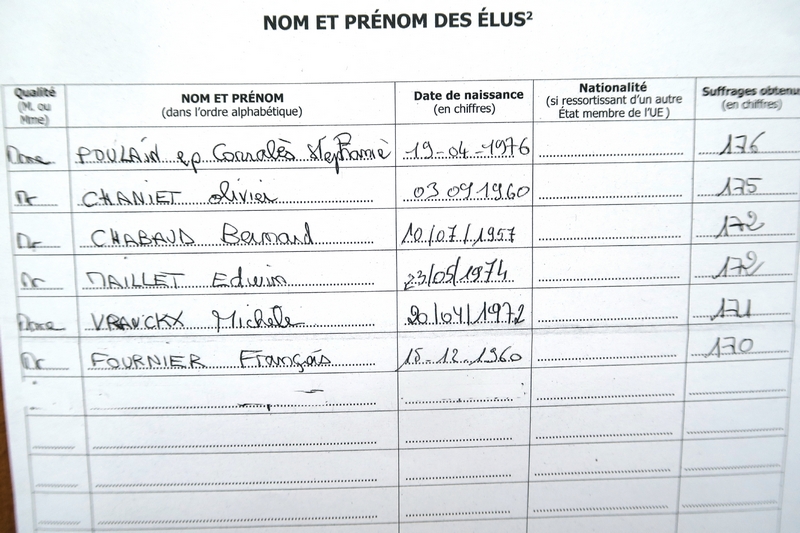 NOM ET PRÉNOM DES ÉLUS²
Qualité (M. ou Mme) NOM ET PRÉNOM (dans l'ordre alphabétique) Date de naissance (en chiffres) Nationalité (si ressortissant d'un autre État membre de l'UE) Suffrages obtenu (en chiffres)
Dme POULAIN ep Corralès Stéphanie 19-04-1976 176
Mr CHANIET Olivier 03 09 1960 175
Mr CHABAUD Bernard 10/07/1957 172
Mr MAILLET Edwin 23/05/1974 172
Dme VRANCKX Michele 20/04/1972 171
Mr FOURNIER François 15-12-1960 170